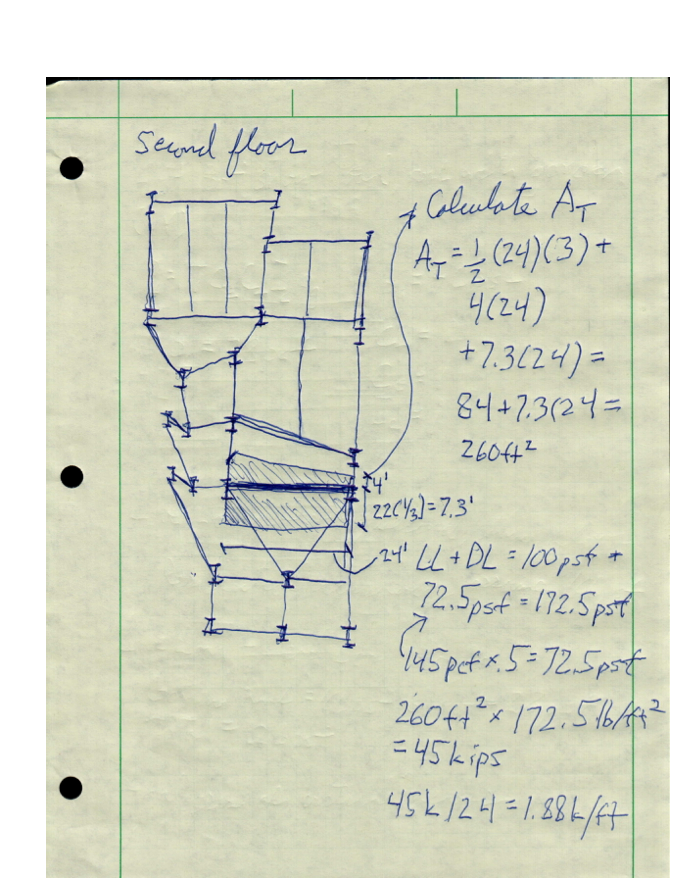 Second floor
Calculate A_T
A_T = 1/2 (24)(3) +
4(24)
+7.3(24) =
84+7.3(24 =
260ft²
4'
22(1/3) = 7.3'
24'
LL + DL = 100psf +
72.5psf = 172.5psf
145pcf x .5 = 72.5psf
260ft² x 172.5lb/ft²
= 45kips
45k/24 = 1.88k/ft